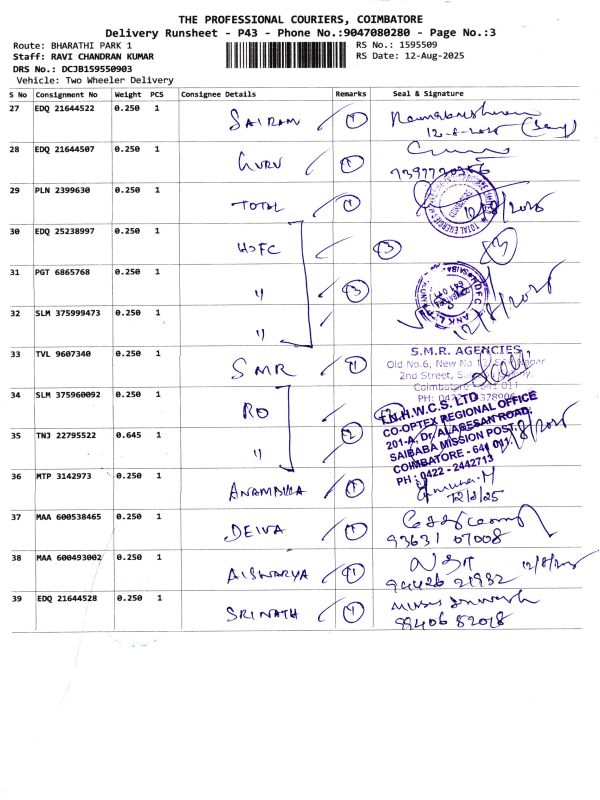 THE PROFESSIONAL COURIERS, COIMBATORE
Delivery Runsheet - P43 - Phone No.:9047080280 - Page No.:3
Route: BHARATHI PARK 1
RS No.: 1595509
Staff: RAVI CHANDRAN KUMAR
RS Date: 12-Aug-2025
DRS No.: DCJB159550903
Vehicle: Two Wheeler Delivery
S No Consignment No Weight PCS Consignee Details Remarks Seal & Signature
27 EDQ 21644522 0.250 1 SAIRAM 1
28 EDQ 21644507 0.250 1 GURU 1
29 PLN 2399630 0.250 1 TOTAL 1 12/8/2025
30 EDQ 25238997 0.250 1 HDFC 3
31 PGT 6865768 0.250 1 " 3
12/8/2025
32 SLM 375999473 0.250 1 "
33 TVL 9607340 0.250 1 SMR 1
S.M.R. AGENCIES
Old No.6, New No
2nd Street,
Coimbatore - 641 011
34 SLM 375960092 0.250 1 RO 2
T.N.H.W.C.S. LTD
CO-OPTEX REGIONAL OFFICE
201-A, Dr. ALAGESAN ROAD,
SAIBABA MISSION POST,
COIMBATORE - 641 011.
PH : 0422 - 2442713
35 TNJ 22795522 0.645 1 "
36 MTP 3142973 0.250 1 1
12/8/25
37 MAA 600538465 0.250 1 DEIVA 1
93631 07008
38 MAA 600493002 0.250 1 AISWARYA 1 12/8/2025
94426 21932
39 EDQ 21644528 0.250 1 SRINATH 1
99406 82018